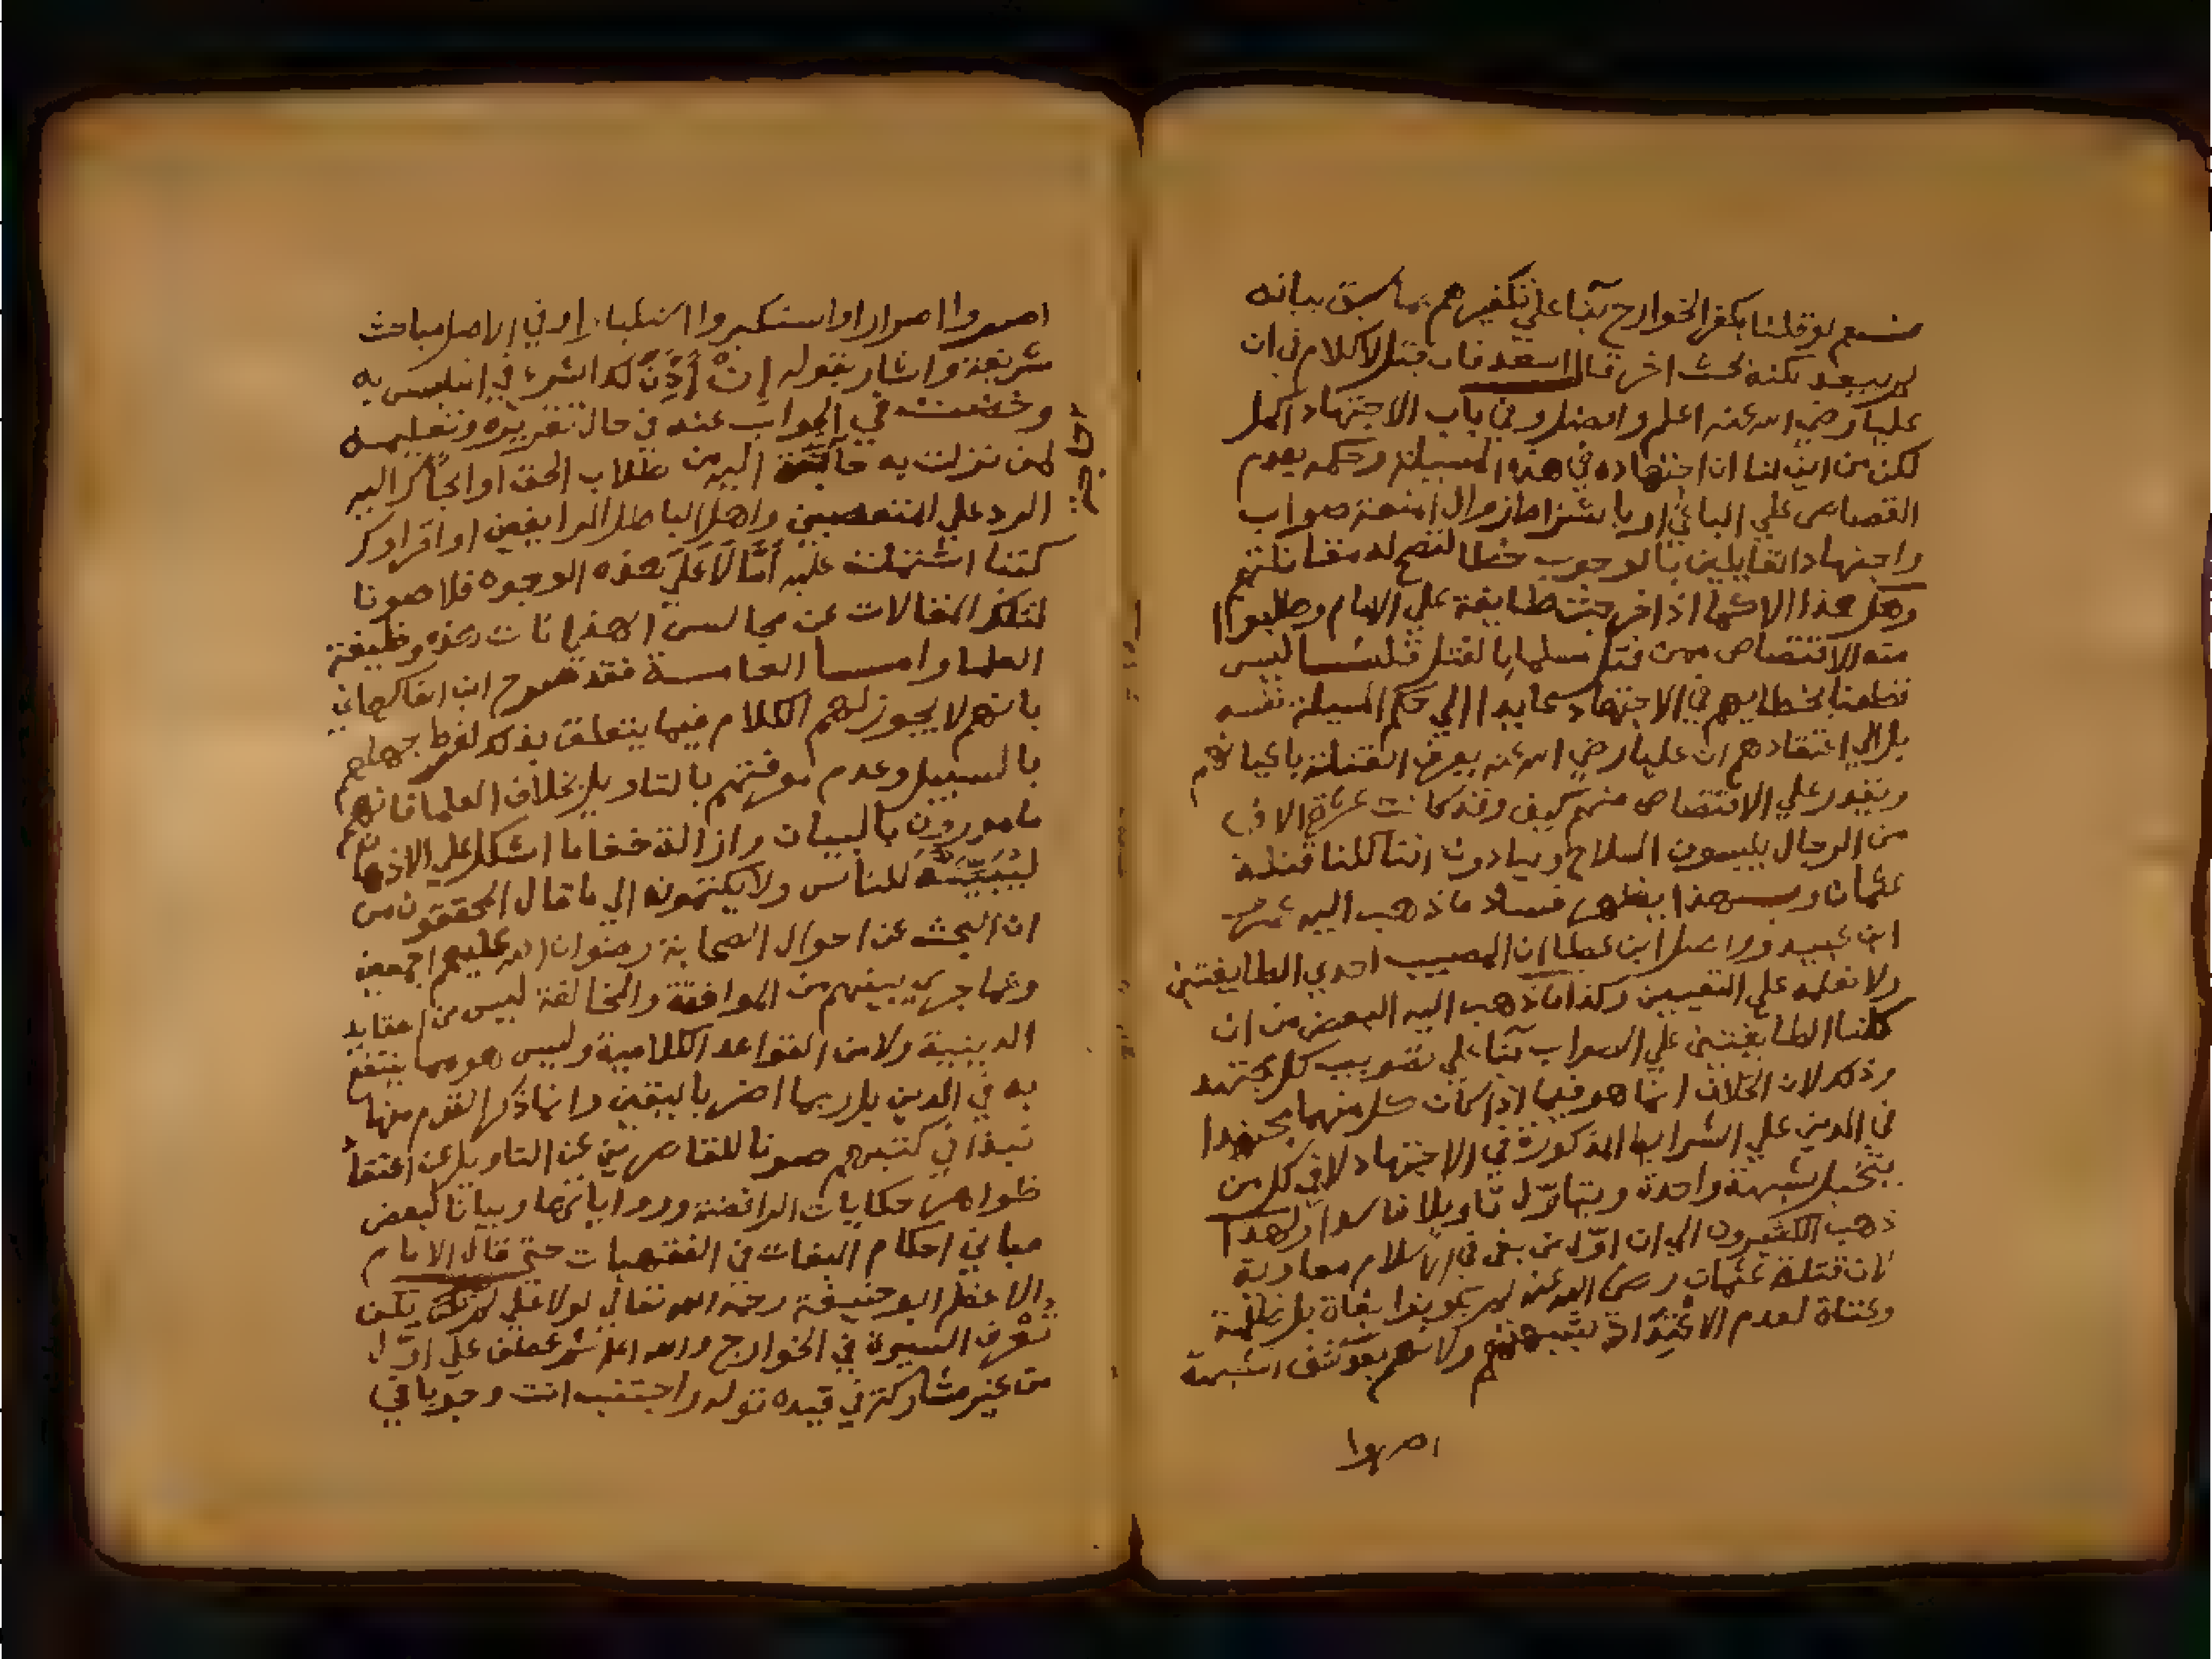 نعم لو قلنا بكفر الخوارج بنا علي تكفيرهم بما سبق بيانه
لم يبعد لكنه بحث اخر قال السعد فان قيل لا كلام في ان
عليا رضي الله عنه اعلم وافضل وفي باب الاجتهاد اكمل
لكن من اين لنا ان اجتهاده في هذه المسيلة وحكمه بعدم
القصاص علي الباغي او باشتراط زوال المنعة صواب
واجتهاد القايلين بالوجوب خطا لتصح له مقاتلتهم
وهل هذا الا كما اذا خرجت طايفة علي الامام وطلبوا
منه الاقتصاص ممن قتل مسلما بالقتل قلنا ليس
قطعنا بخطايهم في الاجتهاد عايدا الي حكم المسيلة نفسه
بل الي اعتقادهم ان عليا رضي الله عنه يعرف القتلة باعيانهم
ويقدر علي الاقتصاص منهم كيف وقد كانت عشرة الاف
من الرجال يلبسون السلاح وينادون اننا كلنا قتلة
عثمان وبهذا يظهر فساد ما ذهب اليه عمرو
ابن عبيد وواصل ابن عطا ان المصيب احدي الطايفتين
ولا نعلمه علي التعيين وكذا ما ذهب اليه البعض من ان
كلتا الطايفتين علي الصواب بنا علي تصويب كل مجتهد
وذلك لان الخلاف انما هو فيما اذا كان كل منهما مجتهدا
في الدين علي الشرايط المذكورة في الاجتهاد لا في كل من
يتخيل شبهة واحدة ويتاول تاويلا فاسدا ولهذا
ذهب الكثيرون الي ان اول من بغي في الاسلام معاوية
لان قتلة عثمان رضي الله عنه لم يكونوا بغاة بل ظلمة
وعتاة لعدم الاعتداد بشبهتهم ولانهم بعد كشف الشبهة
اصروا
اصروا اصرارا واستكبروا استكبارا وفي الاصل مباحث
شريفة واشار بقوله إن أذن لك الشرع في التلبس به
وخضت في الجواب عنه في حال تقريره وتعليمه
لمن نزلت به حاجة اليه من طلاب الحق او الجاك اليه
الرد علي المتعصبين واهل الباطل الزايغين او اقراوك
كتبا اشتملت عليه أما لا علي هذه الوجوه فلا صونا
لتلك المقالات عن مجالس الهذيانات هذه وظيفة
العلما واما العامة فقد صرح ابن الفاكهاني
بانهم لا يجوز لهم الكلام فيما يتعلق بذلك لفرط جهلهم
بالسبيل وعدم معرفتهم بالتاويل بخلاف العلما فانهم
مامورون بالبيان وازالة خفا ما اشكل علي الاذهان
ليبيننه للناس ولا يكتمونه الي ما قال المحققون من
ان البحث عن احوال الصحابة رضوان الله عليهم اجمعين
وعما جري بينهم من الموافقة والمخالفة ليس من العقايد
الدينية ولا من القواعد الكلامية وليس هو مما ينتفع
به في الدين بل ربما اضر باليقين وانما ذكر القوم منها
نبذا في كتبهم صونا للقاصرين عن التاويل عن اعتقاد
ظواهر حكايات الرافضة ورواياتها وبيانا لبعض
مباني احكام البغات في الفقهيات حتي قال الامام
الاعظم ابو حنيفة رحمه الله تعالي لولا علي لم تكن
تعرف السيرة في الخوارج والله اعلم ثم عطف علي اول
من غير مشاركة في قيده قوله واجتنب انت وجوبا في